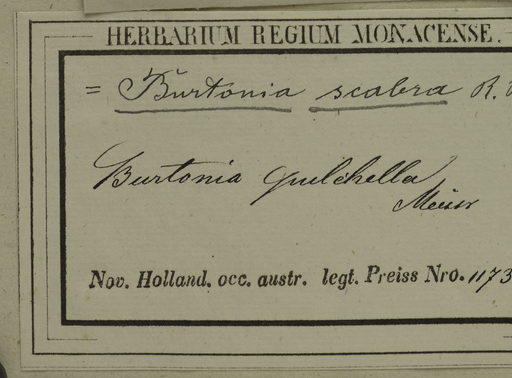 HERBARIUM REGIUM MONACENSE.
= Burtonia scabra R.
Burtonia pulchella
Meisn
Nov. Holland. occ. austr. legt. Preiss Nro. 1173